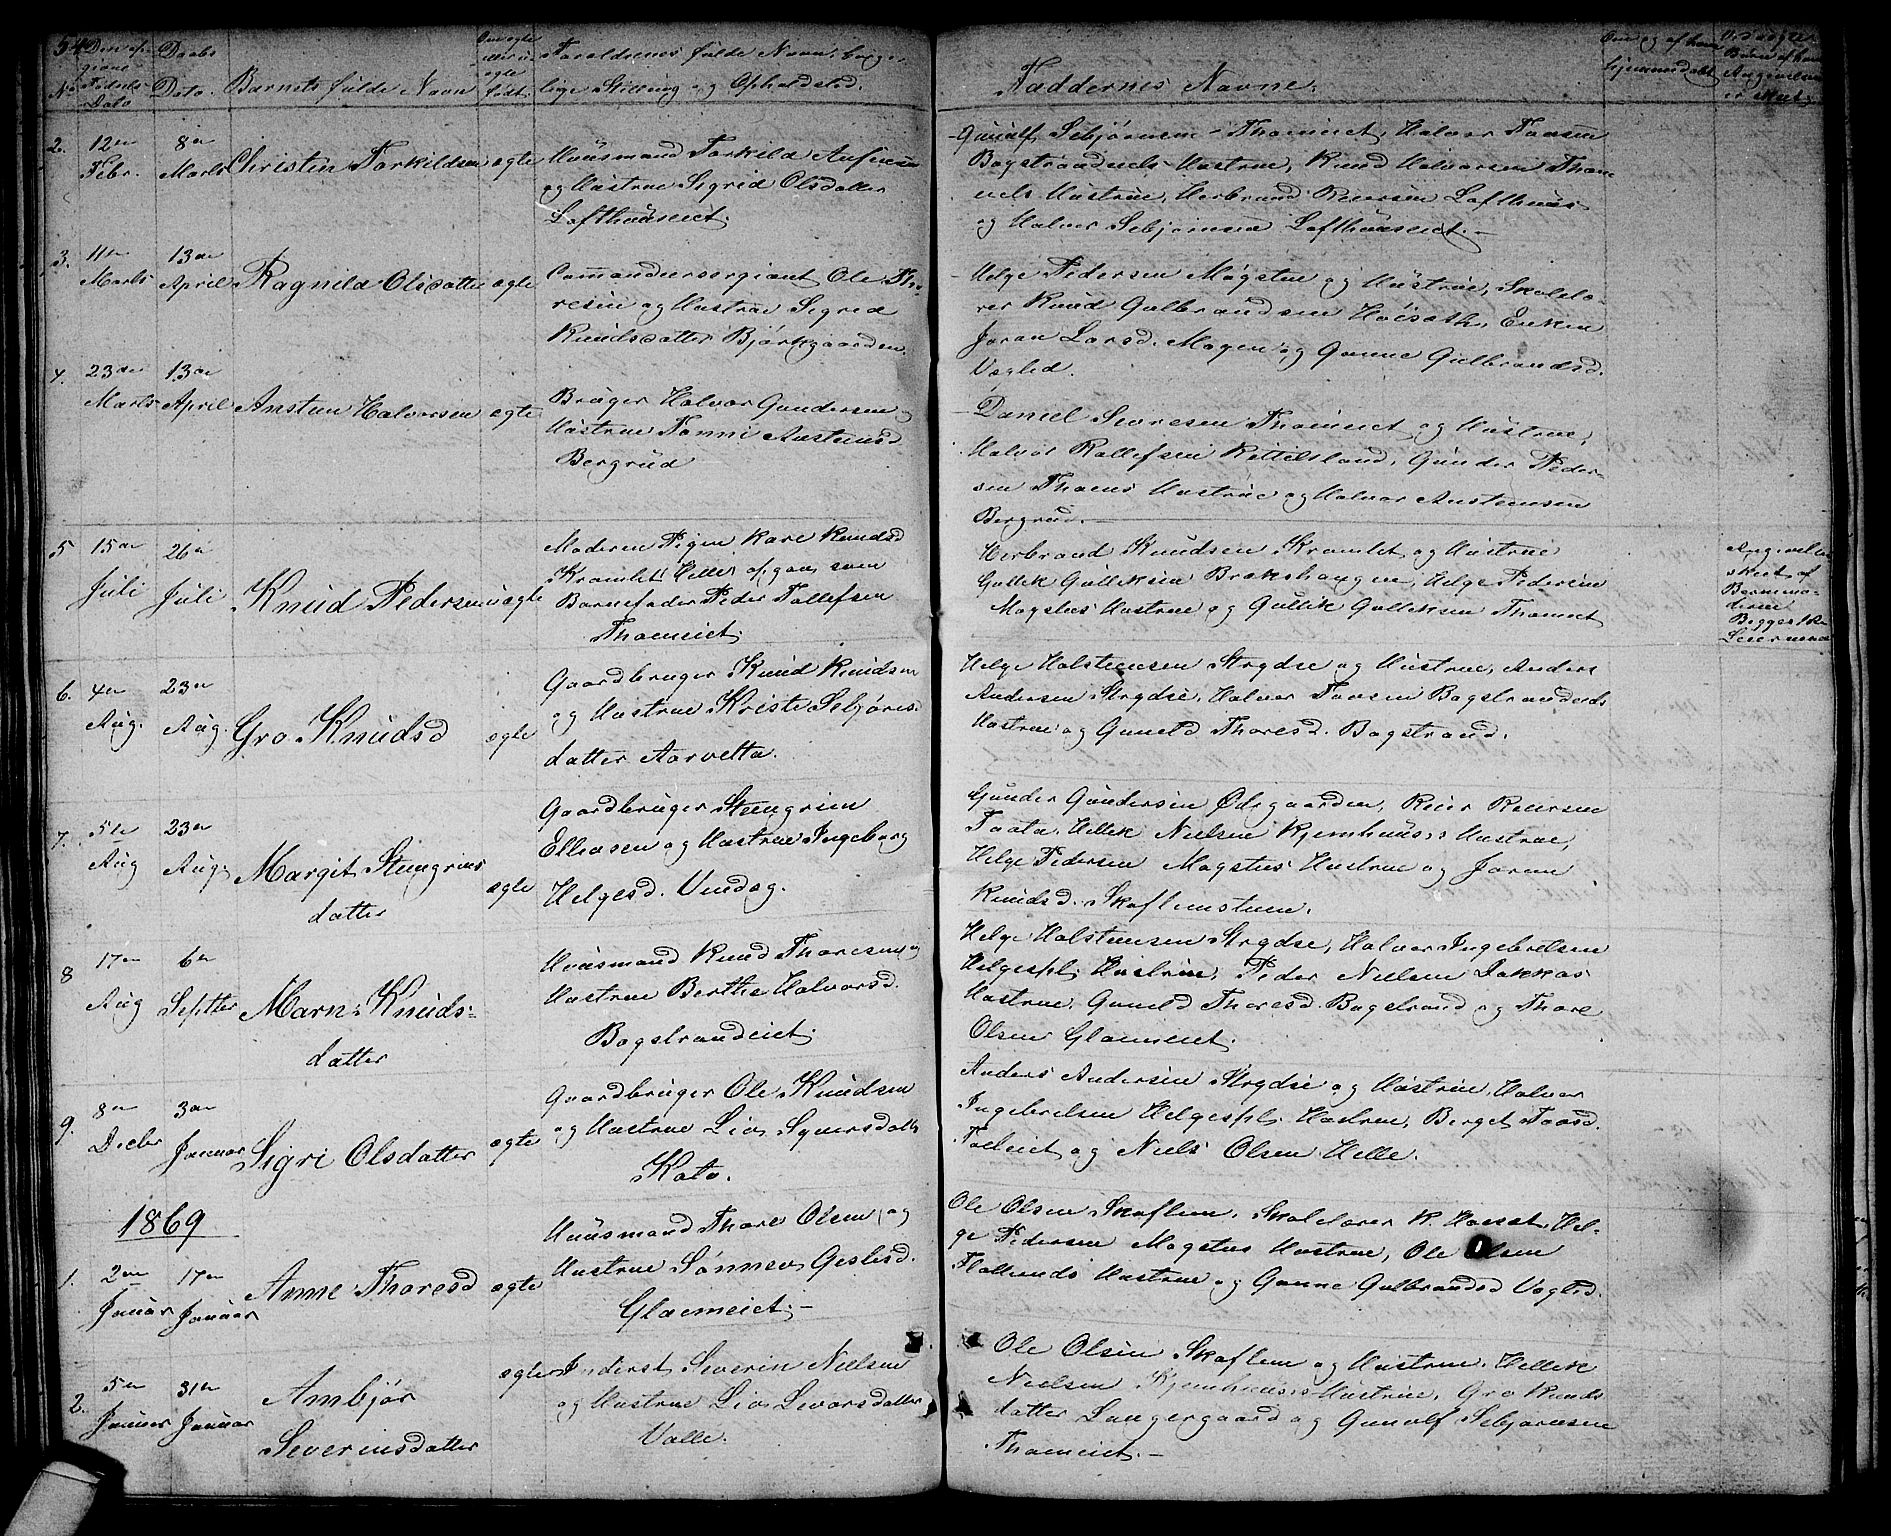 54 Den op-
givne
Fødsels-
Dato
No
Daabs
Dato.
Barnets fulde Navn
Om ægte
eller u-
ægte
født.
Forældrenes fulde Navn, borger-
lige Stilling og Opholdsted.
Faddernes Navne.
2. 12te Febr. 8de Marts Christen Torkildsen ægte
Huusmand Torkild
og Hustrue Sigrid Olsdatter
Lofthuuseiet.
Gunulf Sebjørnsen Thomeiet, Halvor Toresen
Bagstrandeiets Hustrue, Knud Halvorsen Thom-
eiets Hustrue, Herbrand Reiersen Lofthuus
og Halvor Sebjørnsen Lofthuuseiet.-
3. 11te Marts 13de April Ragnild Olsdatter ægte
Commandeersergiant Ole Tho-
resen og Hustrue Sigrid
Knudsdatter Bjørkgaarden.
Helge Pedersen Magsten og Hustrue, Skolelæ-
rer Knud Gulbrandsen Høisæth, Enken
Joran Larsd. Mogen og Gonne Gulbrandsd.
Vegled.
4. 23de Marts 13de April Ansten Halvorsen ægte
Bruger Halvor Gundersen og
Hustrue Tonni Anstensd
Bergrud
Daniel Thomeiet og Hustrue,
Halvor Rollefsen Kittilsland, Gunder Peder-
sen Thoens Hustrue og Halvor Anstensen
Bergrud.-
5 15de Juli 26de Juli Knud Pedersen uægte
Moderen Pigen Kari Knudsd
Kramlet Helle, opgav som
Barnefader Peder Tollefsen
Thomeiet.
Herbrand Knudsen Kramlet og Hustrue
Gullik Gulliksen Brakshaugen, Helge Pedersen
Magstes Hustrue og Gullik Gulleksen Thomeiet
Angivelsen
skeet af
Barnemo-
deren
Begges 1ste
Leiermaal
6. 4de Aug. 23de Aug. Gro Knudsd ægte
Gaardbruger Knud Knudsen
og Hustrue Kristi Sebjørns-
datter Aarvelta.
Helge Holstensen Strydse og Hustrue, Anders
Andersen Strydse, Halvor Tovsen Bagstrandeiets
Hustrue og Gunild Thoresd. Bagstrand.
7. 5te Aug 23de Aug. Margit Stengrims
datter ægte
Gaardbruger Stengrim
Ellensen og Hustrue Ingeborg
Helgesd. Vindeg.
Gunder Gundersen Ødegaarden, Reier Reiersen
Traata, Hellik Nielsen Kjemhuus's Hustrue,
Helge Pedersen Magstes Hustrue og Joran
Knudsd. Skoflenstuen.
8 17de Aug 6te Septber Marn: Knuds-
datter
Huusmand Knud Thoresen og
Hustrue Berthe Halvorsd.
Bagstrandeiet.
Helge Holstensen Strydse, Halvor Ingebrelsen
Helgespl: Hustrue, Peder Nielsen Dokkas
Hustrue, Gunild Thoresd. Bagstrand og Thore
Olsen Gloemeiet.
9. 8de Decbr 3de Januar Sigri Olsdatter ægte
Gaardbruger Ole Knudsen
og Hustrue Liv Syversdatter
Kolo.
Anders Andersen Strydse og Hustrue, Halvor
Ingebrelsen Helgespl. Hustrue, Berget Toosd.
og Niels Olsen Helle.
1869
1. 2den Januar 17de Januar Anne Thoresd ægte
Huusmand Thore Olsen og
Hustrue Sønnev Geslesd.
Gloemeiet.-
Ole Olsen Skoflem, Skolelærer K. Høisæt, Hel-
ge Pedersen Magstes Hustrue, Ole Olsen
Hustrue og Gonne Gulbrandsd Vegled.
2. 5te Januar 31te Januar Ambjør
Severinsdatter ægte
Inderst Severin Nielsen
og Hustrue Liv Levorsdatter
Valle.
Ole Olsen Skoflem og Hustrue, Hellik
Nielsen Kjemhuus's Hustrue, Gro Knuds
datter Langegaard og Gunulf Sebjørnsen
Thomeiet.-